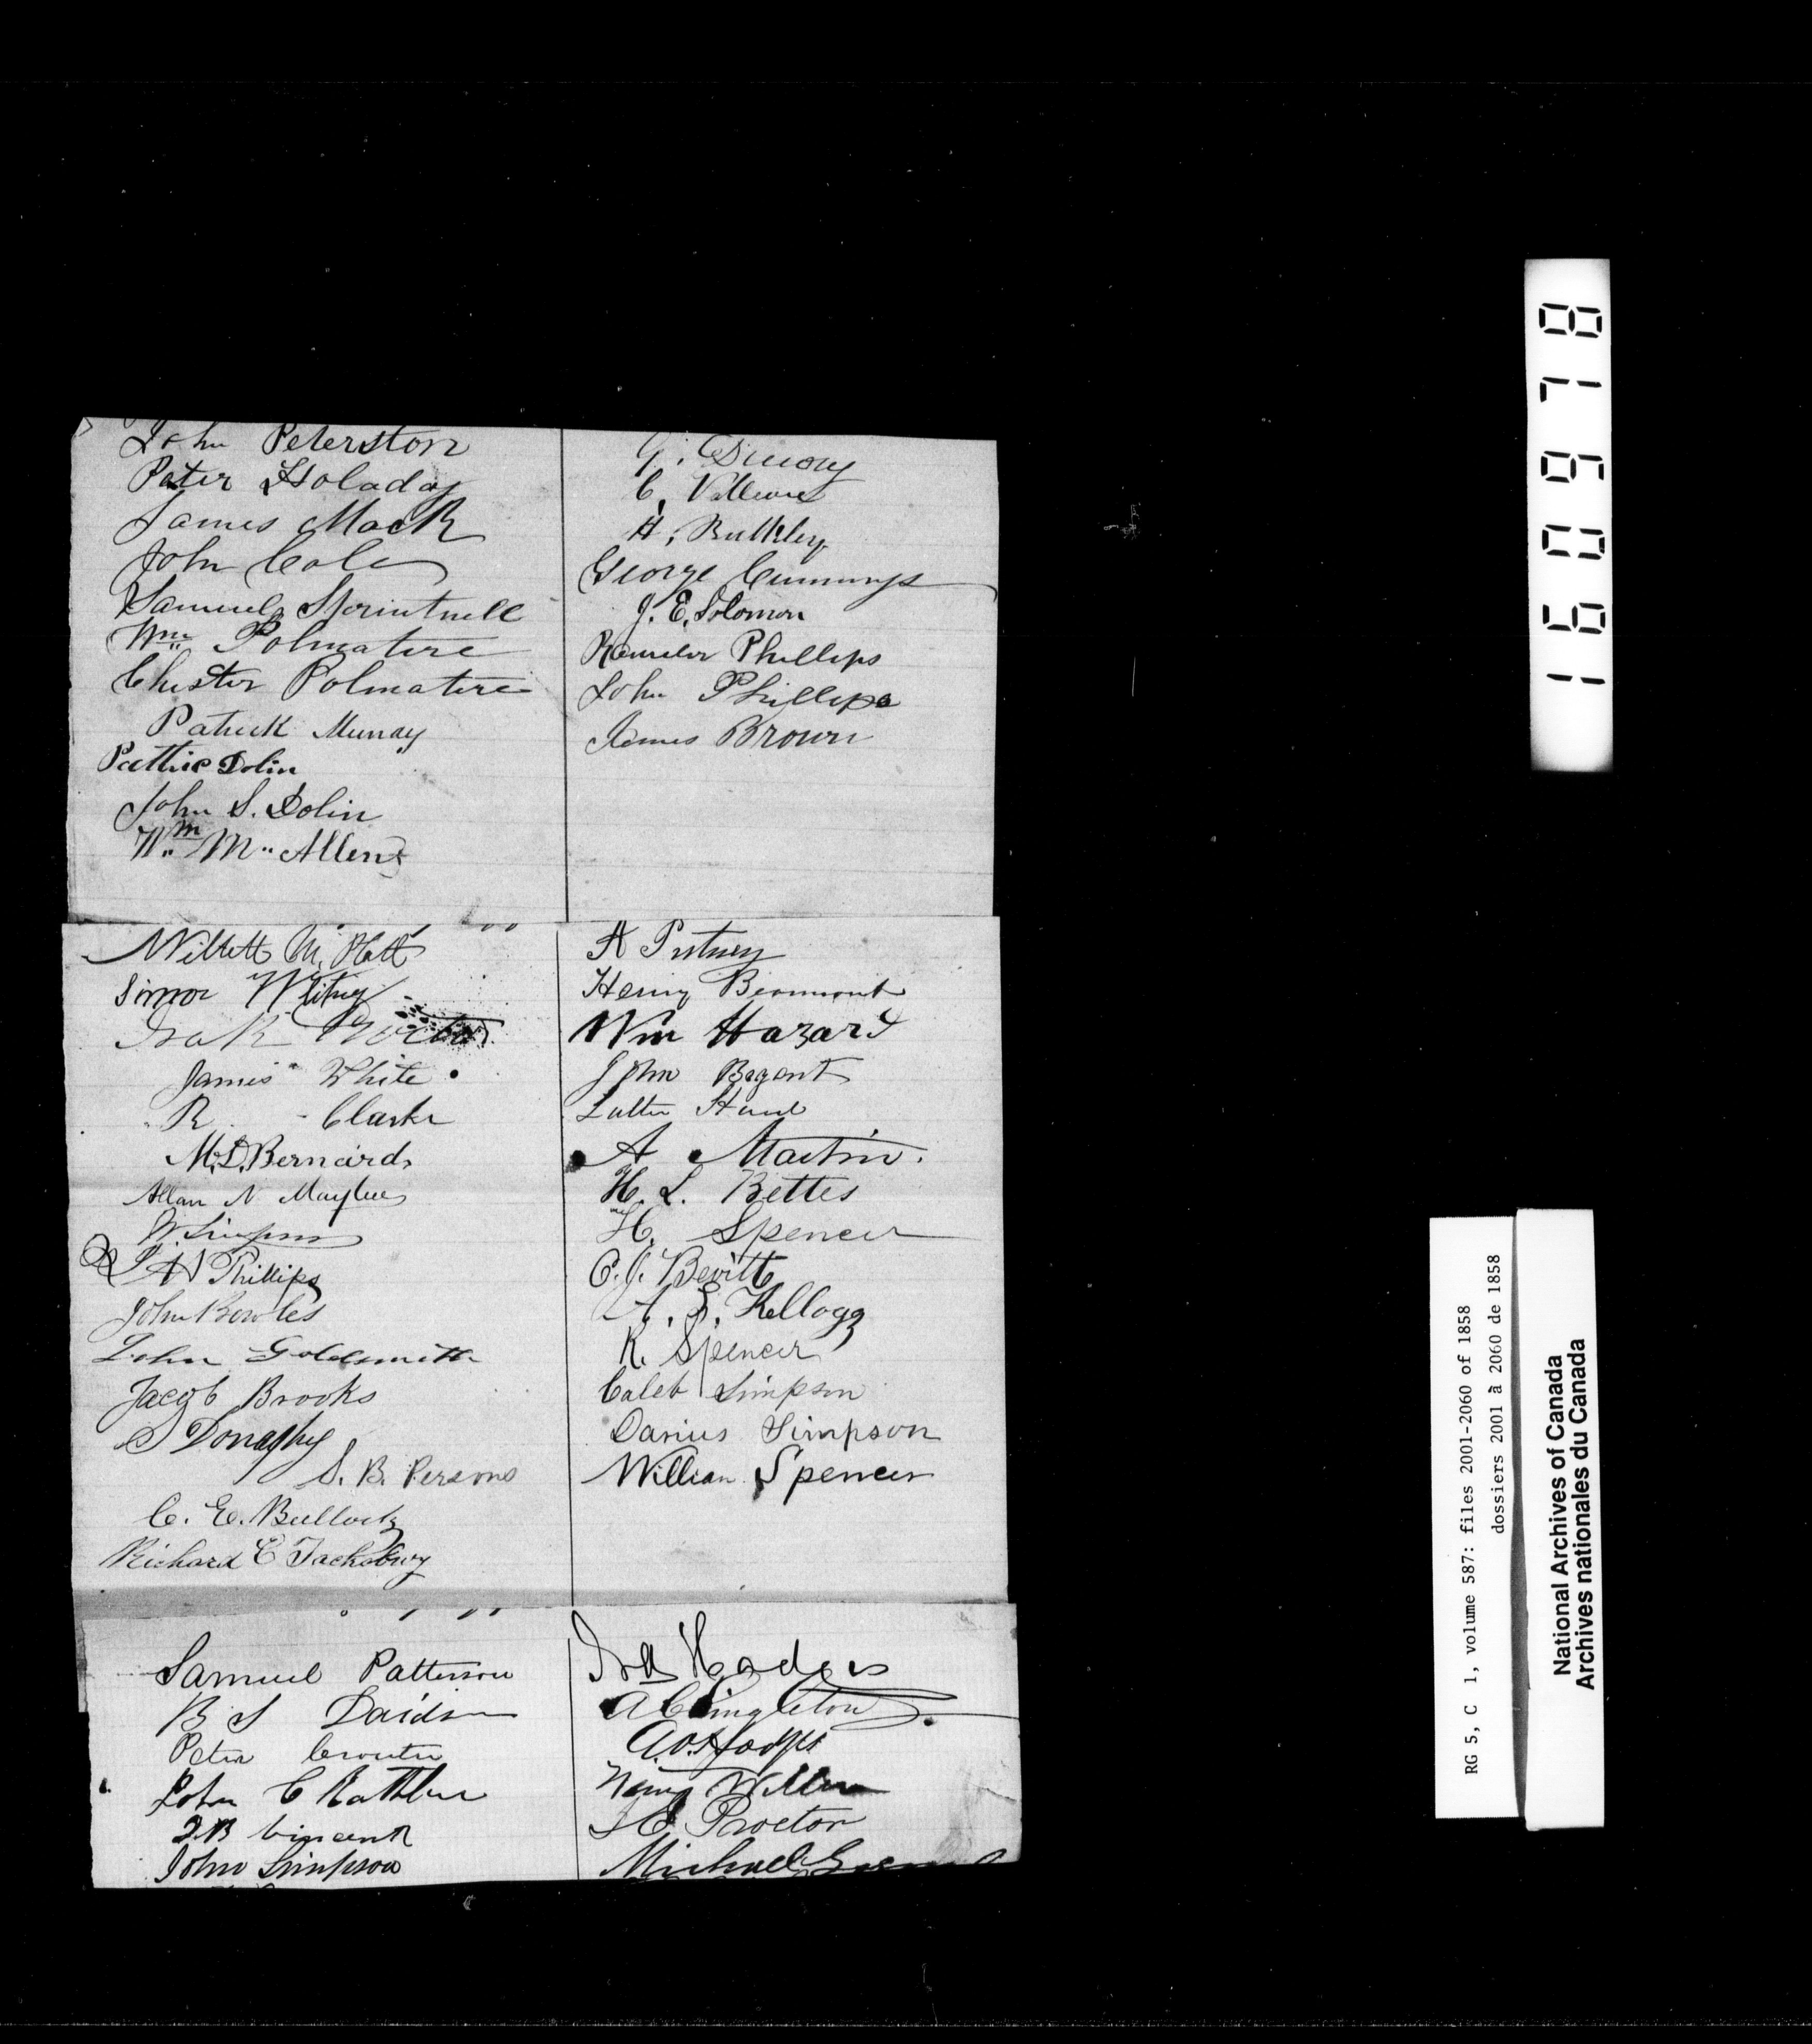 John Peterston
Peter Holaday
James Mack
John Cole
Samuel Sprintnell
Wm Polmatere
Chister Polmatere
Patrick Murray
Pattric Dolin
John S. Dolin
Wm M.. Allen
G.
C. Valleau
H. Bulkley
George Cummings
J. E. Solomon
Phillips
John Phillips
James Brown
Willett M. Platt
Simon
James White
R Clarke
M. D. Bernard
Allan N Maybee
W. Simpson
A Phillips
John Bowles
John Goldsmith
Jacob Brooks
S Donaghy
S. B. Persons
C. E. Bullock
Richard C
A Putney
Henry Beaumont
Wm Hazard
John
Hand
A Martin.
H. L. Bettes
H. Spencer
C. J. Bevitt
A. S. Kellogg
R. Spencer
Caleb Simpson
Darius Simpson
William Spencer
Samuel Patterson
B S
Peter
John C
Vincent
John Simpson
Ira
A C Singleton
Henry
Proctor
Michael
160978
RG 5, C 1, volume 587: files 2001-2060 of 1858
dossiers 2001 à 2060 de 1858
National Archives of Canada
Archives nationales du Canada